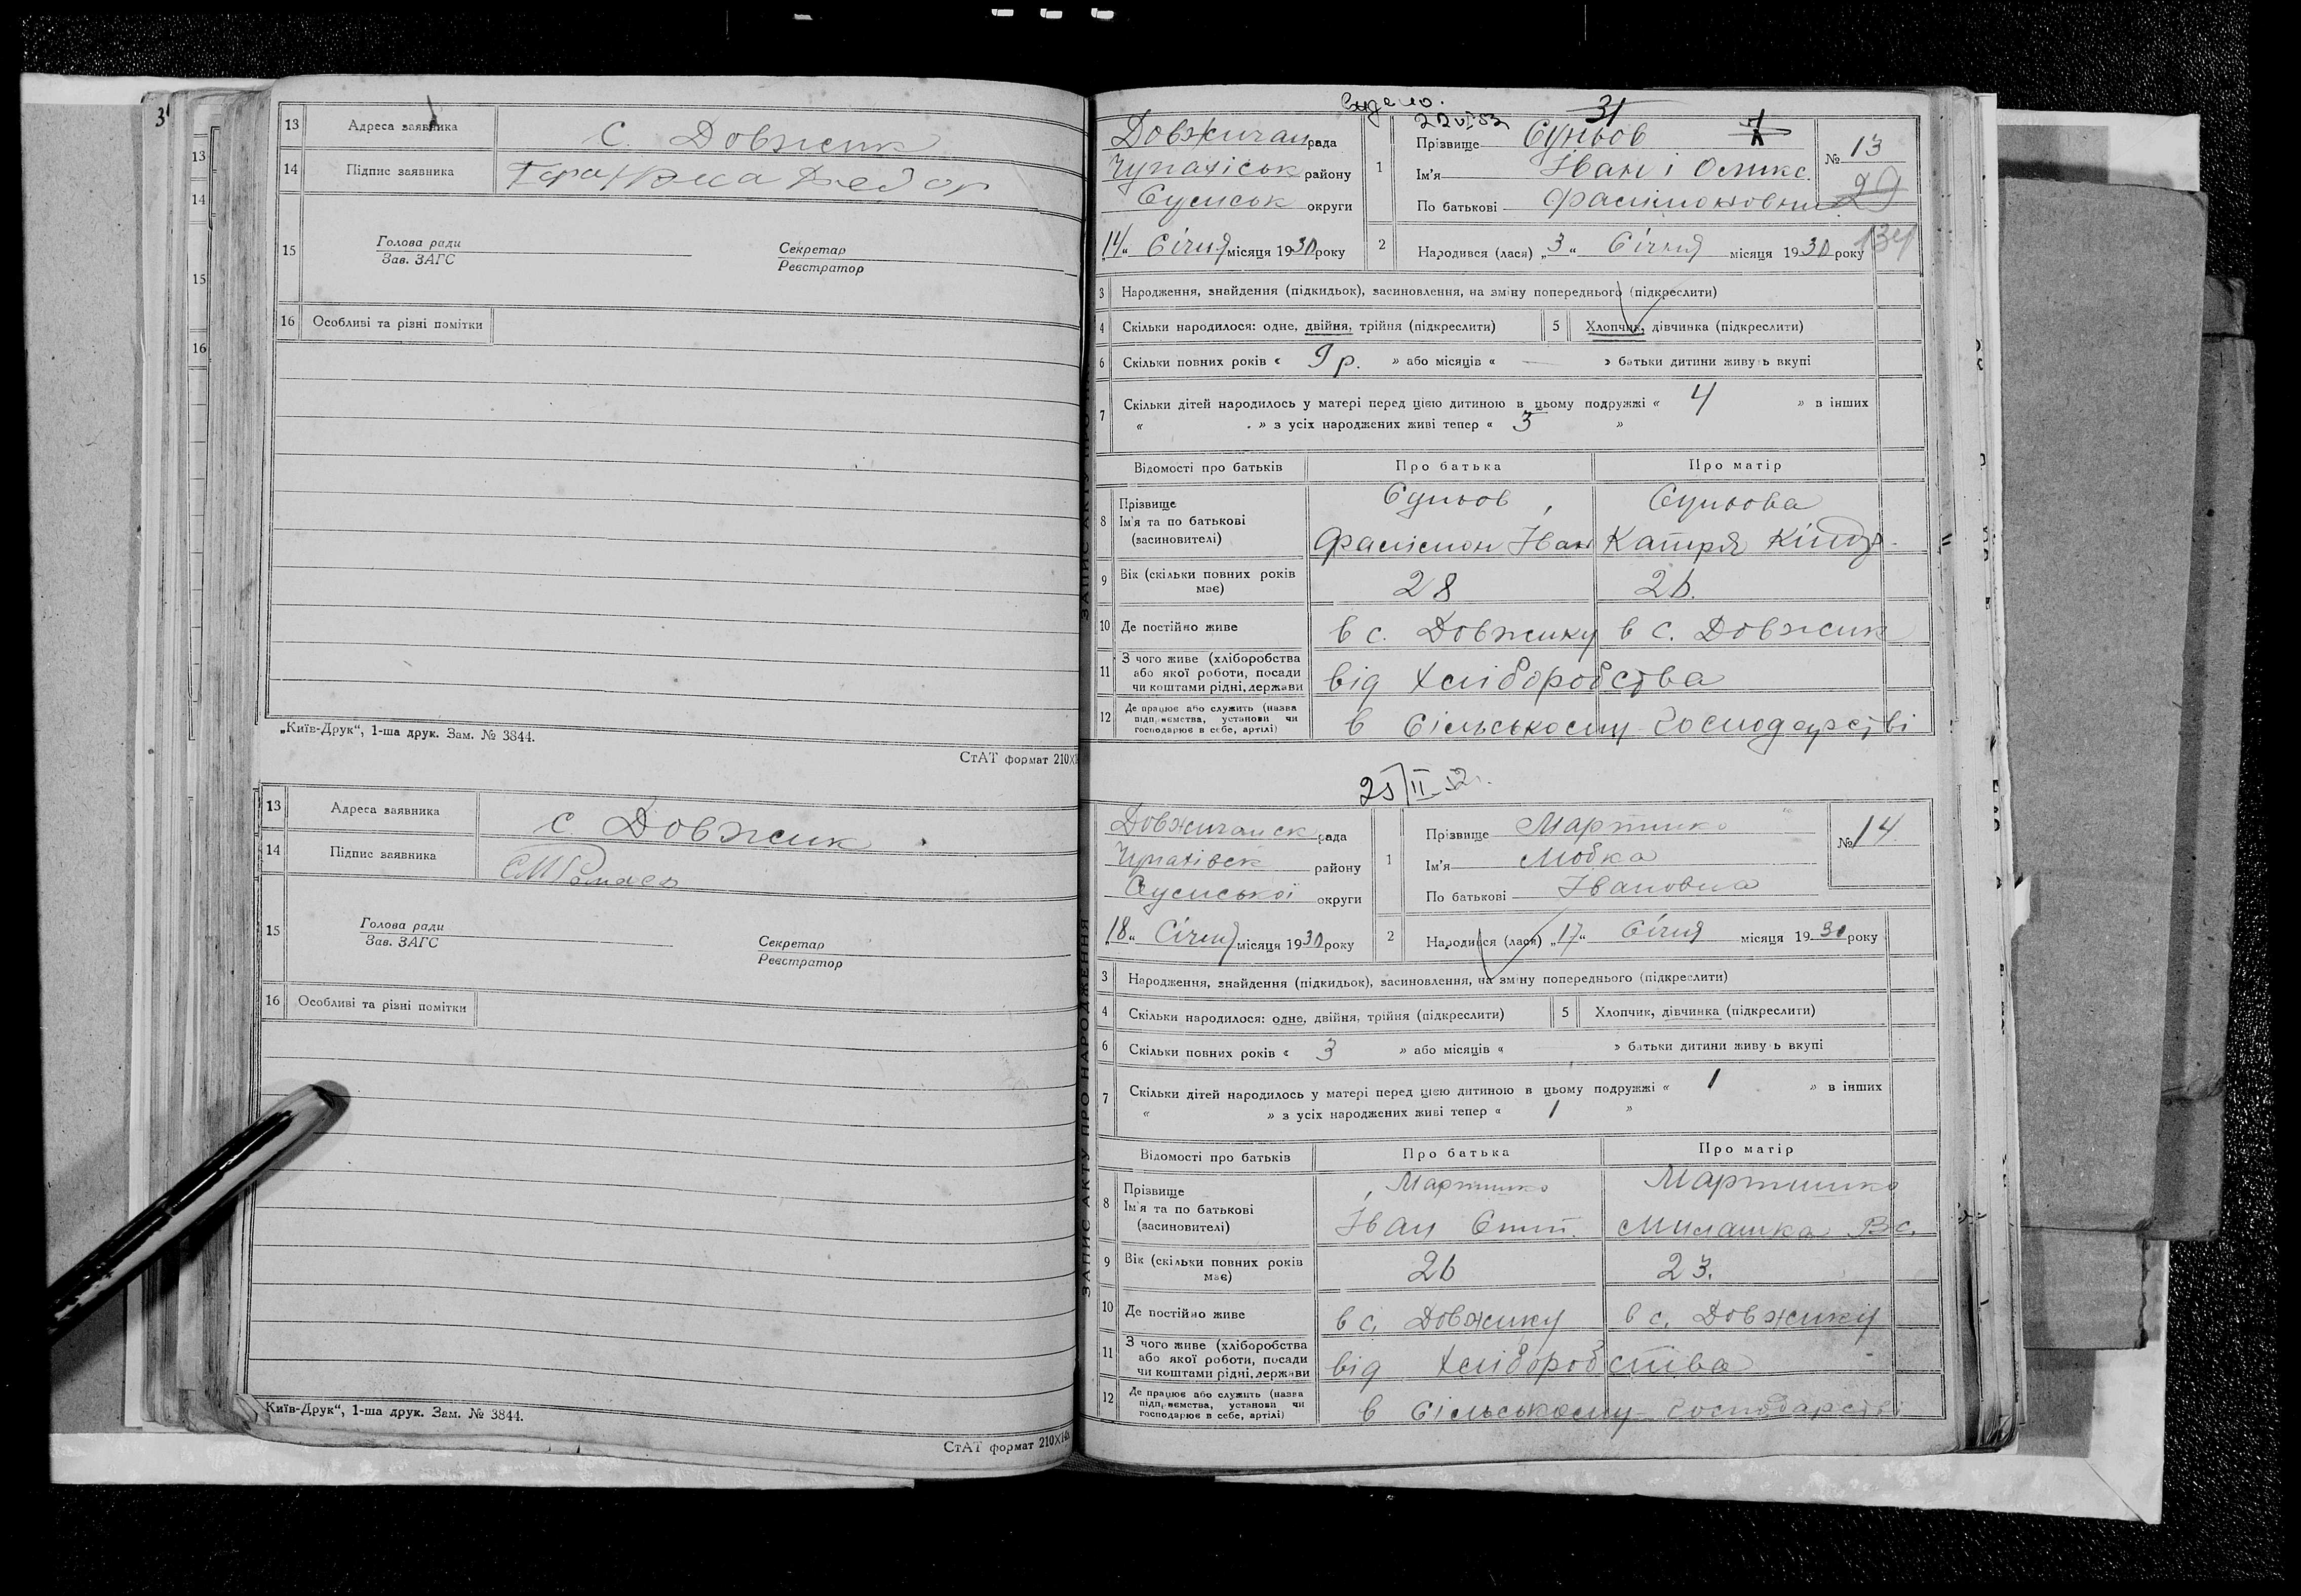 13 Адреса заявника с. Довжик
14 Підпис заявника
15 Голова ради Секретар
Зав. ЗАГС Реєстратор
16 Особливі та різні помітки
„Київ-Друк“, 1-ша друк. Зам. № 3844.
СтАТ формат 210×
13 Адреса заявника с. Довжик
14 Підпис заявника
15 Голова ради Секретар
Зав. ЗАГС Реєстратор
16 Особливі та різні помітки
Київ-Друк“, 1-ша друк. Зам. № 3844.
СтАТ формат 210×
ЗАПИС АКТУ ПРО НАРОДЖЕННЯ
31
Довжичан рада
району
Сумськ округи
„14“ Січня місяця 1930 року
1 Прізвище Суньов
Ім'я Іван і
По батькові
№ 13
29
134
2 Народився (лася) „3“ Січня місяця 1930 року
3 Народження, знайдення (підкидьок), засиновлення, на зміну попереднього (підкреслити)
4 Скільки народилося: одне, двійня, трійня (підкреслити) 5 Хлопчик, дівчинка (підкреслити)
6 Скільки повних років « 9 р. » або місяців « — » батьки дитини живуть вкупі
7 Скільки дітей народилось у матері перед цією дитиною в цьому подружжі « 4 » в інших
« » з усіх народжених живі тепер « 3 »
Відомості про батьків Про батька Про матір
8 Прізвище Суньов Суньова
Ім'я та по батькові
(засиновителі) Іван Катря
9 Вік (скільки повних років має) 28 26.
10 Де постійно живе в с. Довжику в с. Довжик
11 З чого живе (хліборобства
або якої роботи, посади
чи коштами рідні, держави від хліборобства
12 Де працює або служить (назва
підприємства, установи чи
господарює в себе, артілі) в сільському господарстві
25/II
Довжичанск рада
Чупахівск району
Сумської округи
„18“ Січня місяця 1930 року
1 Прізвище Мартинко
Ім'я Любка
По батькові Івановна
№ 14.
2 Народився (лася) „17“ Січня місяця 1930 року
3 Народження, знайдення (підкидьок), засиновлення, на зміну попереднього (підкреслити)
4 Скільки народилося: одне, двійня, трійня (підкреслити) 5 Хлопчик, дівчинка (підкреслити)
6 Скільки повних років « 3 » або місяців « » батьки дитини живуть вкупі
7 Скільки дітей народилось у матері перед цією дитиною в цьому подружжі « 1 » в інших
« » з усіх народжених живі тепер « 1 »
Відомості про батьків Про батька Про матір
8 Прізвище Мартинко Мартинко
Ім'я та по батькові
(засиновителі) Іван Милашка Вс.
9 Вік (скільки повних років має) 26 23.
10 Де постійно живе в с. Довжику в с. Довжику
11 З чого живе (хліборобства
або якої роботи, посади
чи коштами рідні, держави від хліборобства
12 Де працює або служить (назва
підприємства, установа чи
господарює в себе, артілі) в сільському господарстві